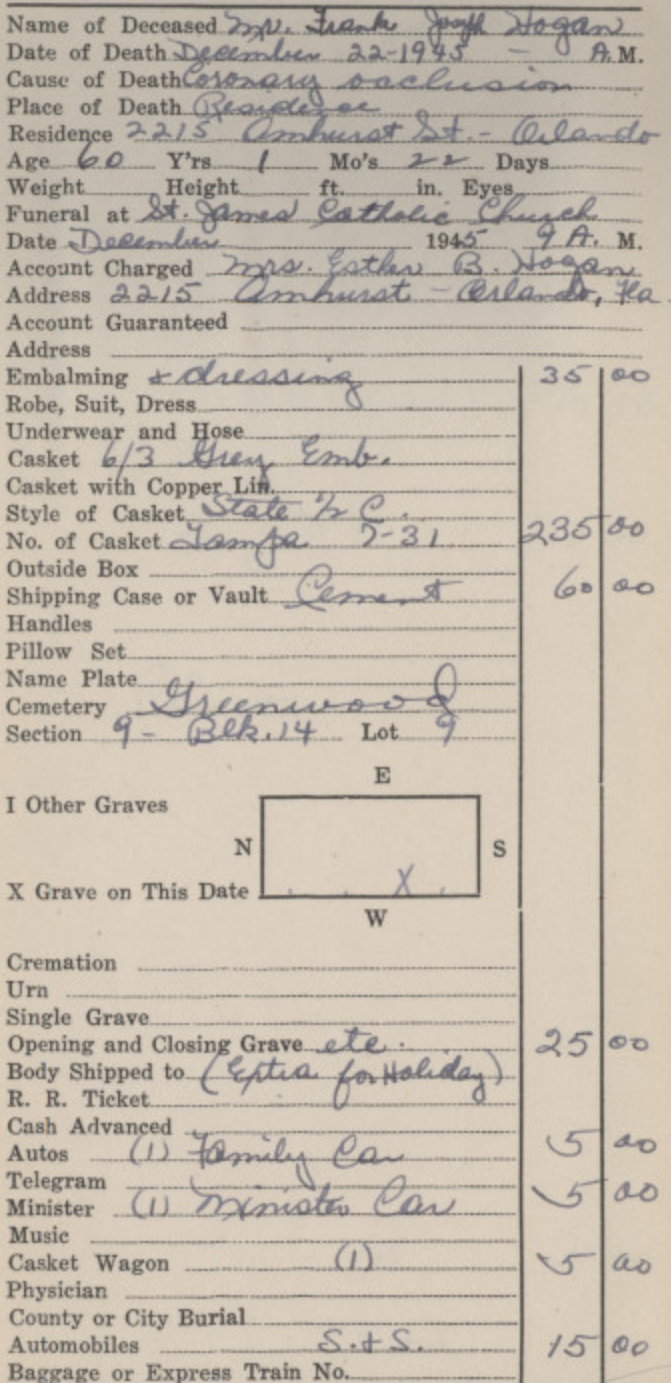 Name of Deceased Mr. Frank Joseph Hogan
Date of Death December 22-1945 - A.M.
Cause of Death Coronary occlusion
Place of Death Residence
Residence 2215 Amhurst St. - Orlando
Age 60 Y'rs 1 Mo's 22 Days
Weight Height ft. in. Eyes
Funeral at St. James Catholic Church
Date December 1945 9 A. M.
Account Charged Mrs. Esther B. Hogan
Address 2215 Amhurst - Orlando, Fla
Account Guaranteed
Address
Embalming & dressing 35 00
Robe, Suit, Dress
Underwear and Hose
Casket 6/3 Grey Emb.
Casket with Copper Lin.
Style of Casket State 1/2 C.
No. of Casket Tampa 7-31 235 00
Outside Box
Shipping Case or Vault Cement 60 00
Handles
Pillow Set
Name Plate
Cemetery Greenwood
Section 9 - Blk. 14 Lot 9
E
I Other Graves
N S
X Grave on This Date X
W
Cremation
Urn
Single Grave
Opening and Closing Grave etc. 25 00
Body Shipped to (Extra for Holiday)
R. R. Ticket
Cash Advanced
Autos (1) Family Car 5 00
Telegram
Minister (1) Minister Car 5 00
Music
Casket Wagon (1) 5 00
Physician
County or City Burial
Automobiles S. & S. 15 00
Baggage or Express Train No.